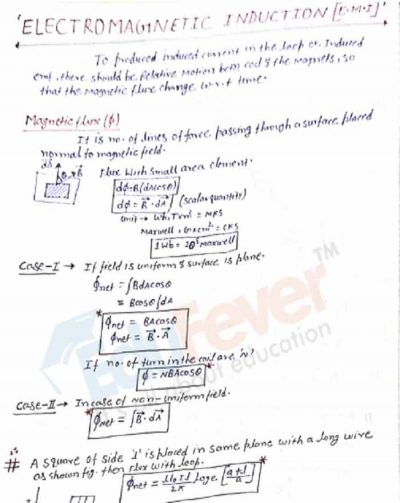 'ELECTROMAGINETIC INDUCTION [E.M.I'
To produced induced current in the loop or. Induced
emf, there should be Relative motion betn coil & the magnets, so
that the magnetic flux change w.r.t time.
Magnetic flux (ϕ)
It is no. of lines of force passing through a surface placed
normal to magnetic field.
Flux with small area element.
dϕ = B(dAcosθ)
dϕ = B⃗ · dA⃗ (scalar quantity)
unit → Wb, Tm² = MKS
Maxwell, G×cm² = CGS
1 Wb = 10⁸ Maxwell
Case-I → If field is uniform & surface is plane.
ϕnet = ∫BdAcosθ
= Bcosθ∫dA
ϕnet = BAcosθ
ϕnet = B⃗ · A⃗
If no. of turn in the coil are 'N'
ϕ = NBAcosθ
Case-II → In case of non-uniform field.
ϕNet = ∫B⃗ · dA⃗
# A square of side 'l' is placed in same plane with a long wire
as shown fig. then flux with loop.
TM
EduFever
education